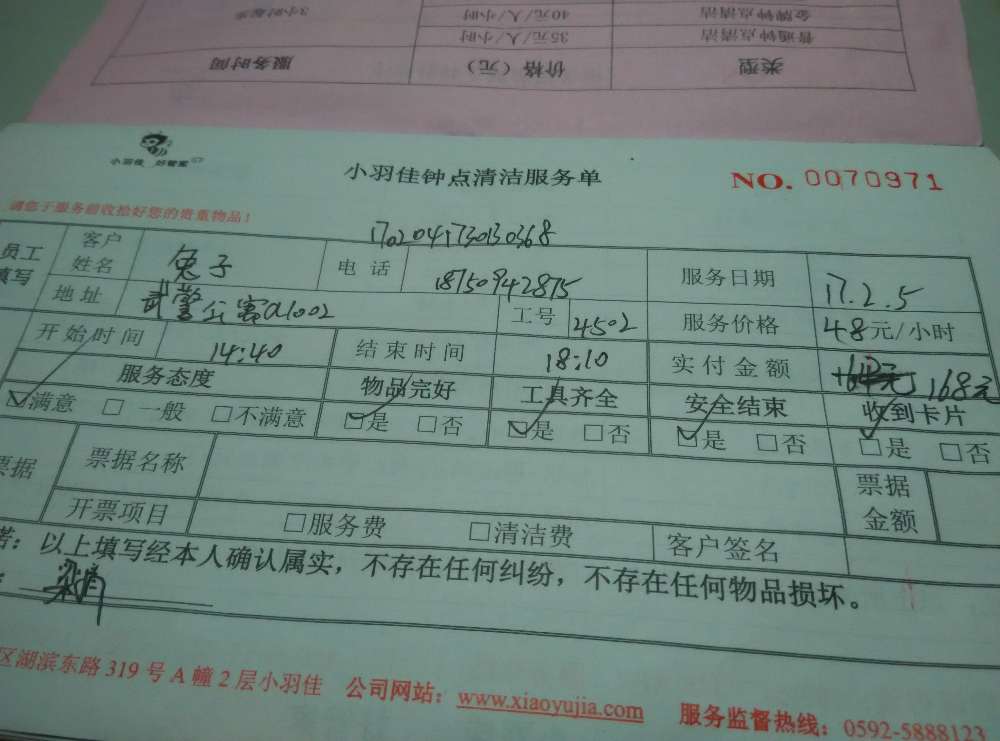 3小时起步
40元/人/小时
金牌钟点清洁
35元/人/小时
普通钟点清洁
服务时间
价格（元）
类型
小羽佳 好管家
小羽佳钟点清洁服务单
NO. 0070971
请您于服务前收拾好您的贵重物品！
170204173030368
员工填写
客户姓名
兔子
电 话
18750942875
服务日期
17.2.5
地址
武警公寓a1002
工号
4502
服务价格
48元/小时
开始时间
14:40
结束时间
18:10
实付金额
168元
服务态度
物品完好
工具齐全
安全结束
收到卡片
☑满意 □ 一般 □不满意
☑是 □否
☑是 □否
☑是 □否
☑是 □否
票据
票据名称
票据金额
开票项目
□服务费 □清洁费
客户签名
诺：以上填写经本人确认属实，不存在任何纠纷，不存在任何物品损坏。
区湖滨东路 319 号 A 幢 2 层小羽佳 公司网站：www.xiaoyujia.com 服务监督热线：0592-5888123